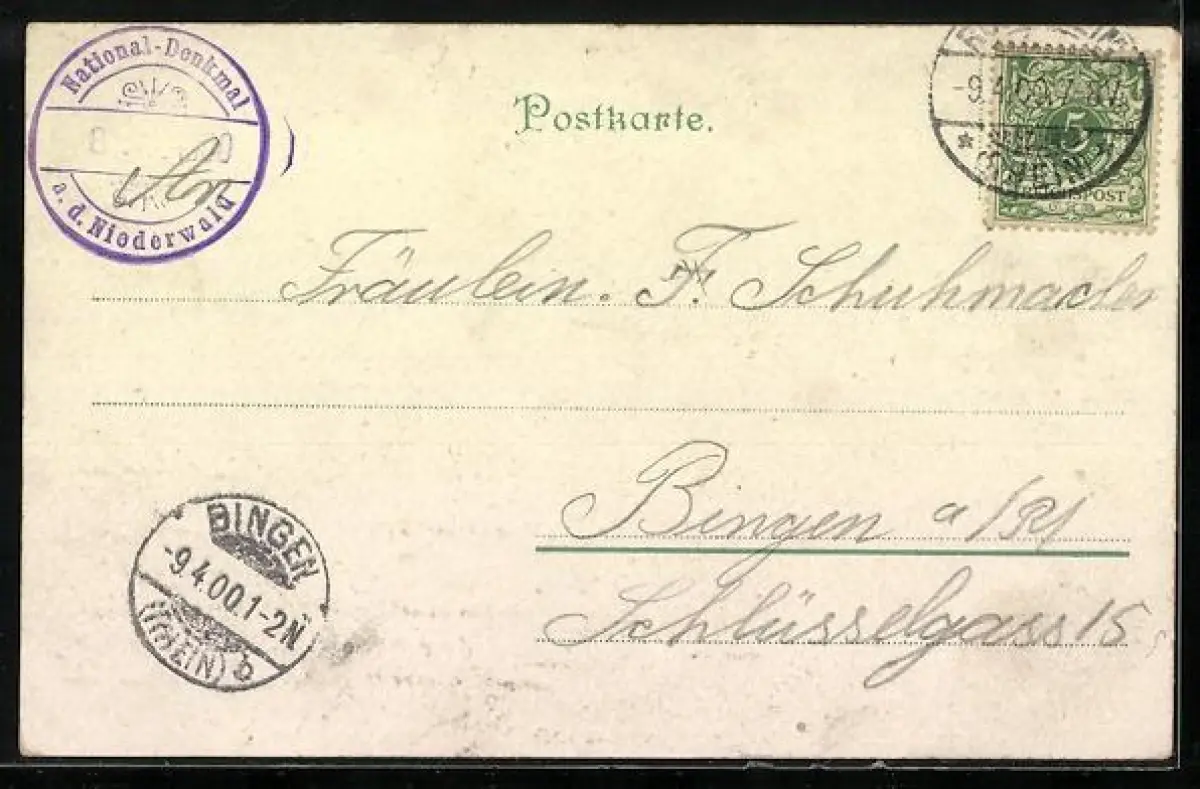 National-Denkmal
a. d. Niederwald
Postkarte.
-9.4.00.7-8V.
(RHEIN)
5
REICHSPOST
Fräulein. F. Schuhmacher
Bingen a/Rh
Schlüsselgass 15,
BINGEN
-9.4.00.1-2N
(RHEIN) b